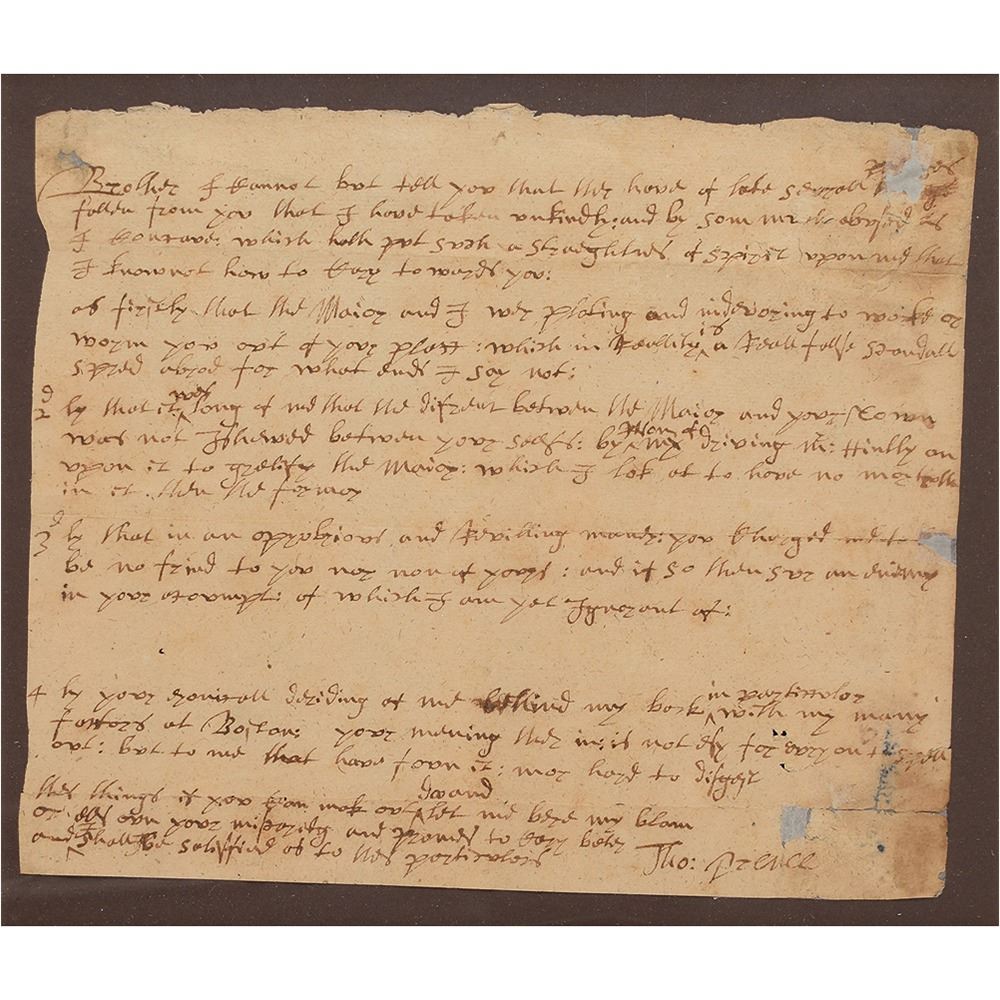 Brother I Cannot but tell you that ther have of late severall
fallen from you that I have taken unkindly: and by som me abused as
I Conceave: which hath put such a straeghtnes of spirit upon me that
I know not how to Cary towards you:
as firstly that the Maior and I wer ploting and indevoring to worke or
worm you out of your place: which in Reallity is a Reall false scandall
spred abrod for what ends I say not:
2d ly that it was long of me that the difrent betwen the Maior and your
was not Ishewed betwen your selfs: by driving Mr: Hinkly on
upon it to gratify the Maior: which I lok at to have no mor truth
in it then the former
3d ly that in an opprobrious and Revilling maner: you Charged me to
be no frind to you nor non of yours: and if so then sur an enimy
in your accoumpt: of which I am yet Ignorant of:
4 ly your deriding of me behind my back in particulor with my many
factors at Boston: your mening ther in: is not esy for every on to
out: but to me that have it: mor hard to disgest
thes things if you Can mak out let me bere my blam
or els own your and promes to Cary beter
and I shall be satisfied as to thes particulors Tho: Prence